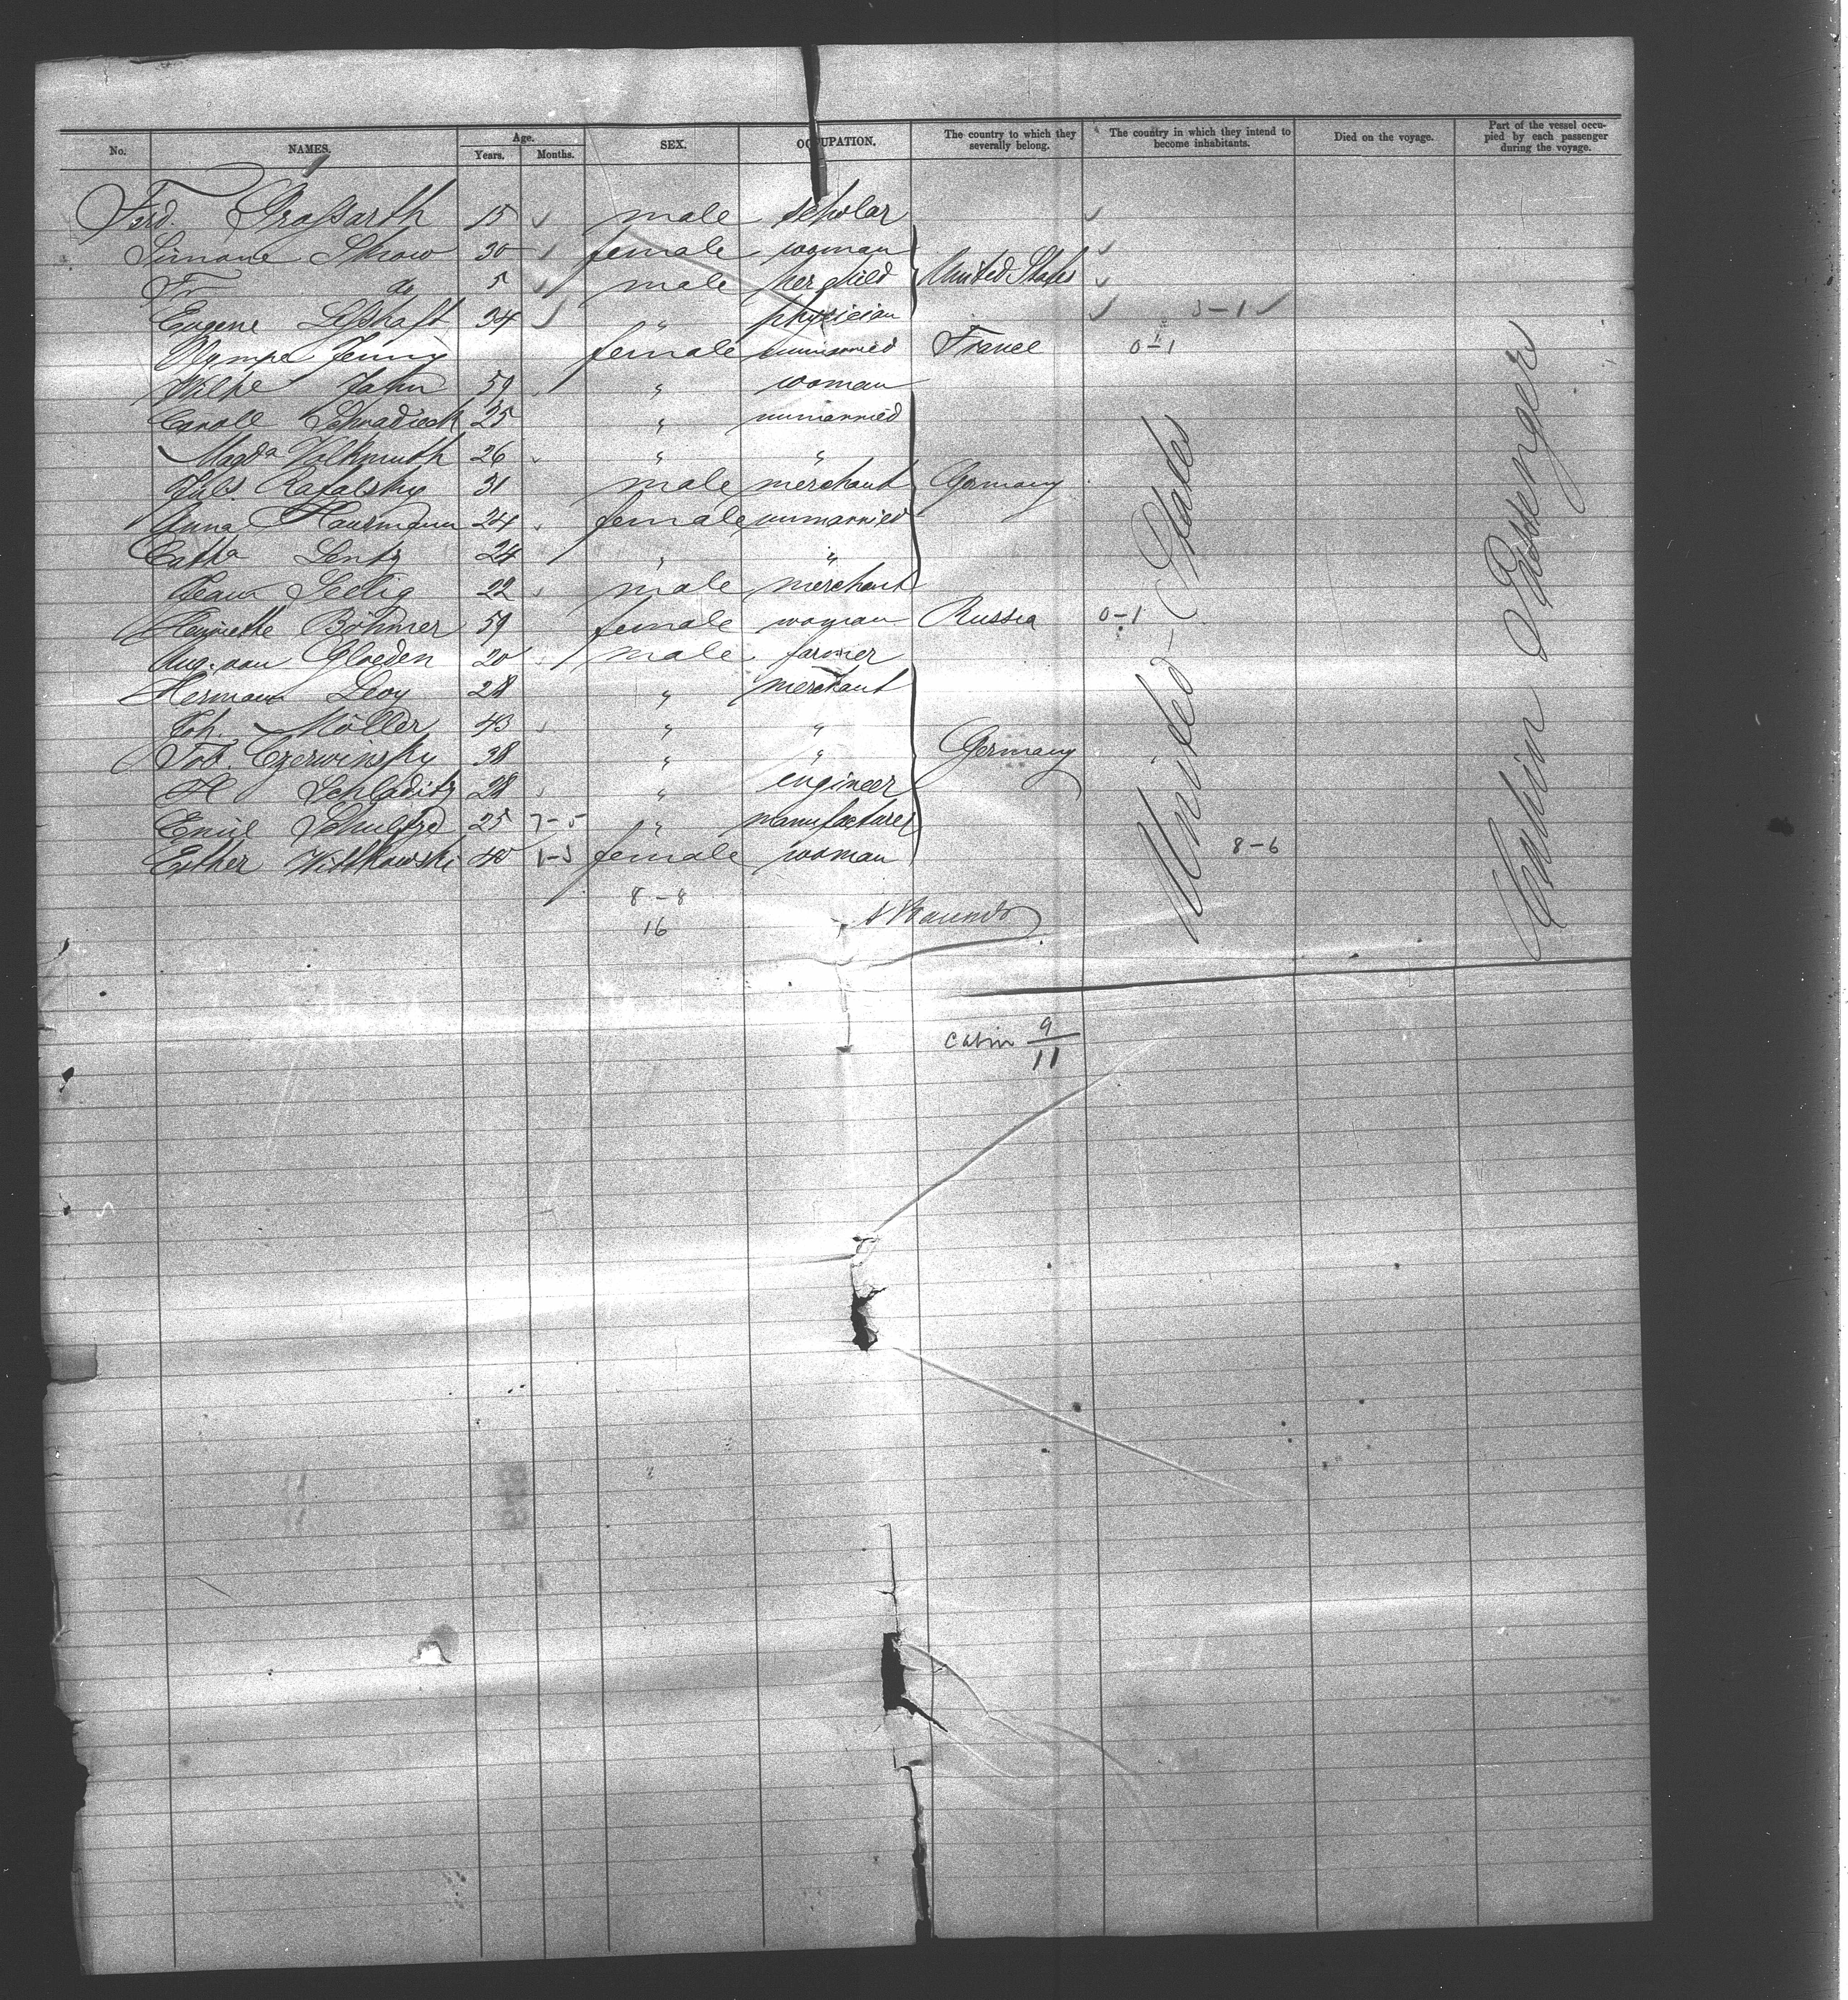 No. NAMES. Age. Years. Months. SEX. OCCUPATION. The country to which they severally belong. The country in which they intend to become inhabitants. Died on the voyage. Part of the vessel occupied by each passenger during the voyage.
Ferd. Graßarth 15 male scholar
Simone Show 30 female woman
Fr do 5 male her child United States
Eugene 34 " physician 3-1
Olympe Jenny female unmarried France 0-1
Wilhe Jahn 59 " woman
Schradieck 25 " unmarried
Magda Volkmuth 26 " "
Juls. Rafalsky 31 male merchant Germany
Anna Hausmann 24 female unmarried
Catha Lentz 24 " "
Seelig 22 male merchant
Henriette Böhmer 59 female woman Russia 0-1
Aug. von Gloeden 20 male farmer
Hermann Levy 28 " merchant
Joh. Möller 43 " "
Tob. Czerwinsky 38 " " Germany
H Schladitz 28 " engineer
Emil Schultze 25 7-5 " manufacturer
Esther Wittkowski 40 1-3 female woman 8-6
United States
Cabin Passengers
8-8
16
cabin 9
11